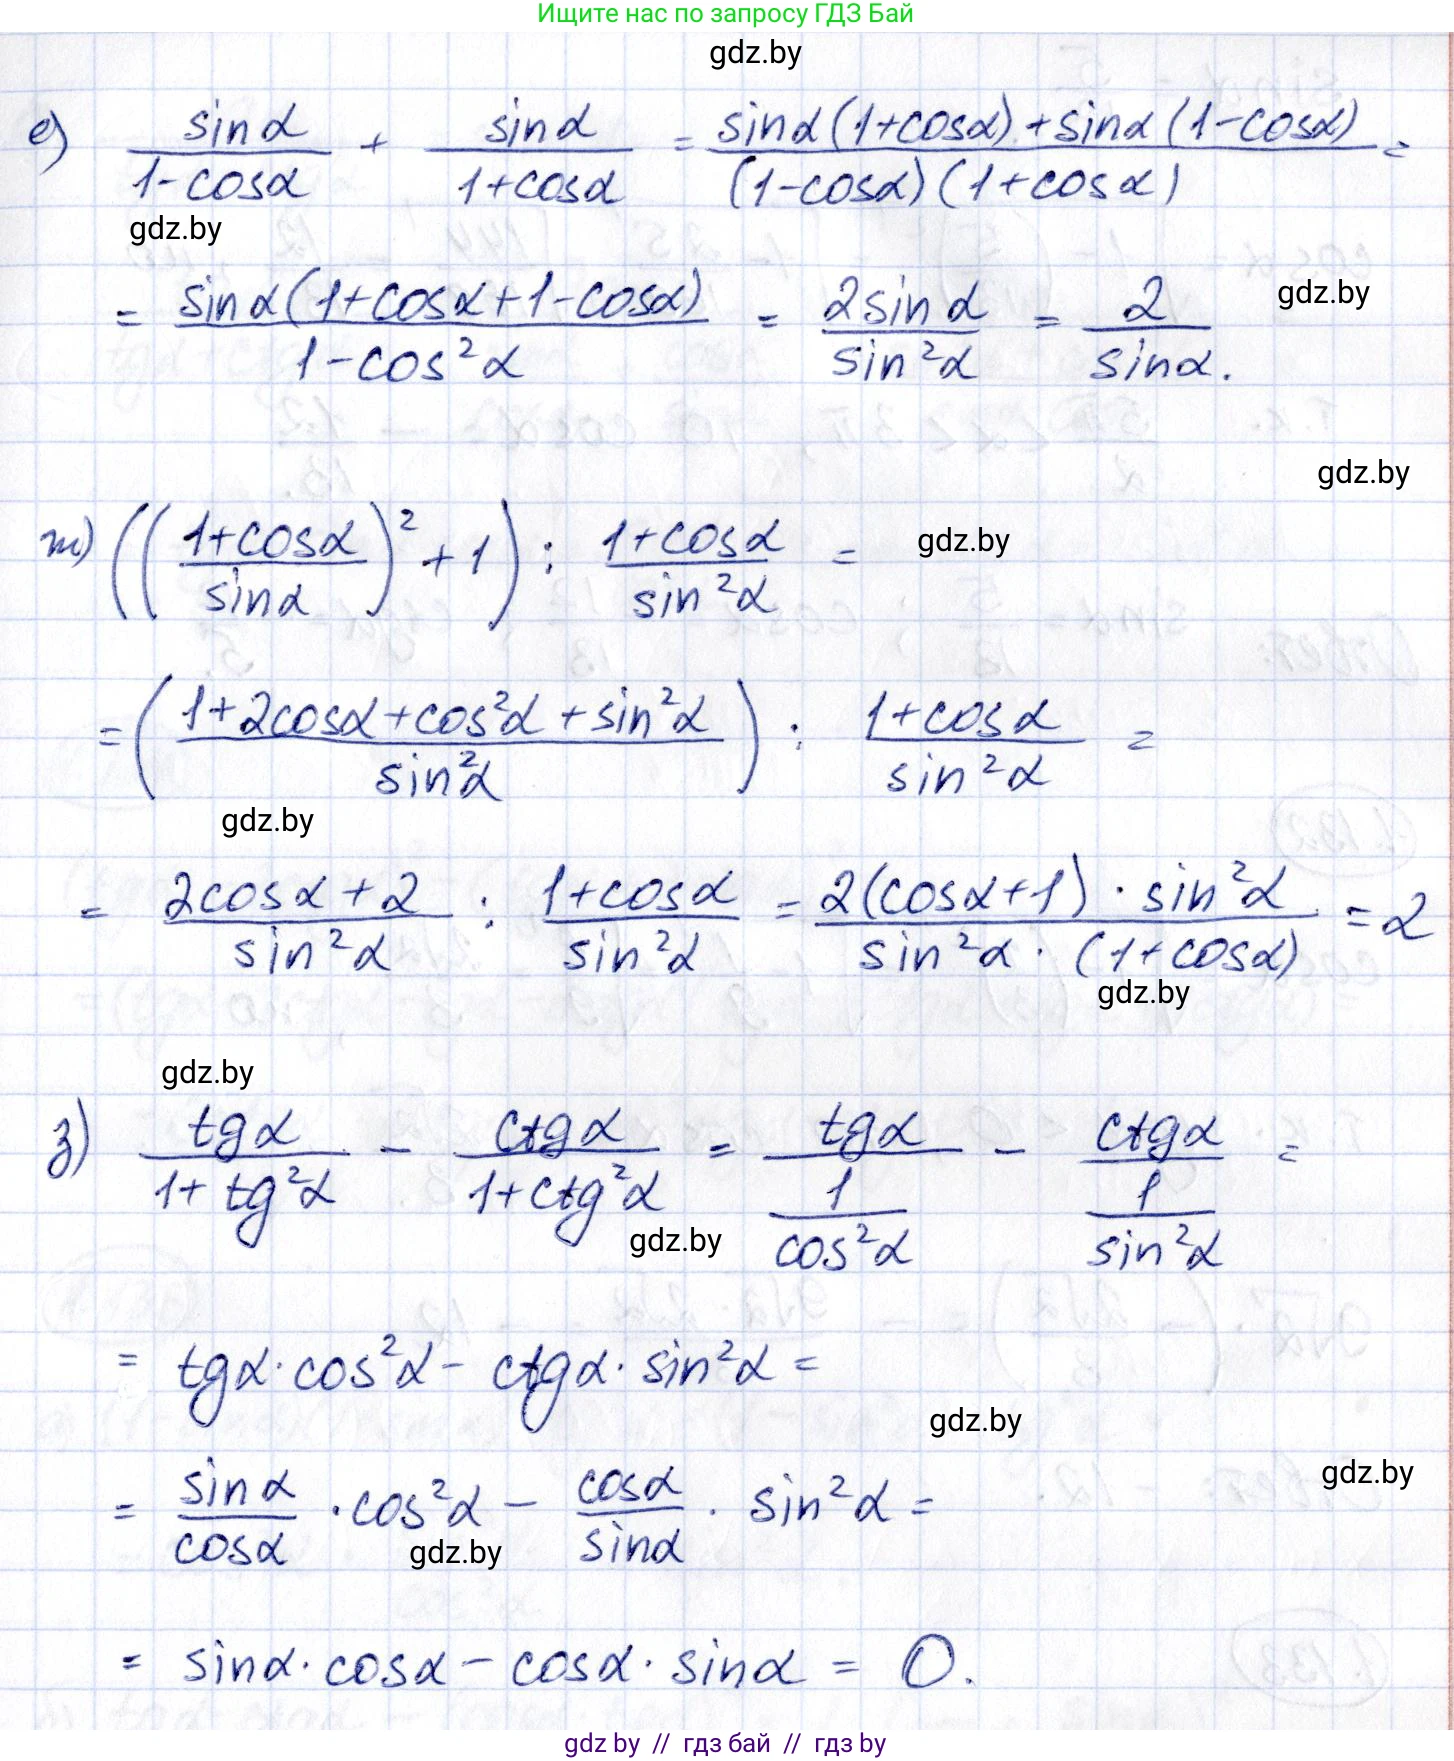 Ищите нас по запросу ГДЗ Бай
gdz.by
е) sinα/(1-cosα) + sinα/(1+cosα) = (sinα(1+cosα)+sinα(1-cosα))/((1-cosα)(1+cosα)) =
gdz.by
= sinα(1+cosα+1-cosα)/(1-cos²α) = 2sinα/sin²α = 2/sinα.
gdz.by
gdz.by
ж) (((1+cosα)/sinα)²+1) : (1+cosα)/sin²α =
gdz.by
= ((1+2cosα+cos²α+sin²α)/sin²α) : (1+cosα)/sin²α =
gdz.by
= (2cosα+2)/sin²α : (1+cosα)/sin²α = (2(cosα+1)·sin²α)/(sin²α·(1+cosα)) = 2
gdz.by
gdz.by
з) tgα/(1+tg²α) - ctgα/(1+ctg²α) = tgα/(1/cos²α) - ctgα/(1/sin²α) =
gdz.by
= tgα·cos²α - ctgα·sin²α =
gdz.by
gdz.by
= sinα/cosα ·cos²α - cosα/sinα · sin²α =
gdz.by
= sinα·cosα - cosα·sinα = 0.
gdz by // гдз бай // гдз by